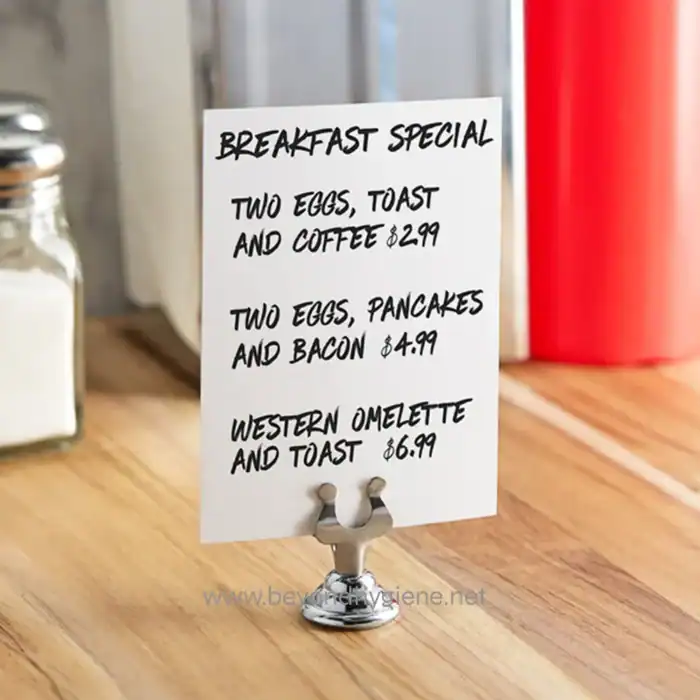 BREAKFAST SPECIAL
TWO EGGS, TOAST
AND COFFEE $2.99
TWO EGGS, PANCAKES
AND BACON $4.99
WESTERN OMELETTE
AND TOAST $6.99
www.beyondhygiene.net